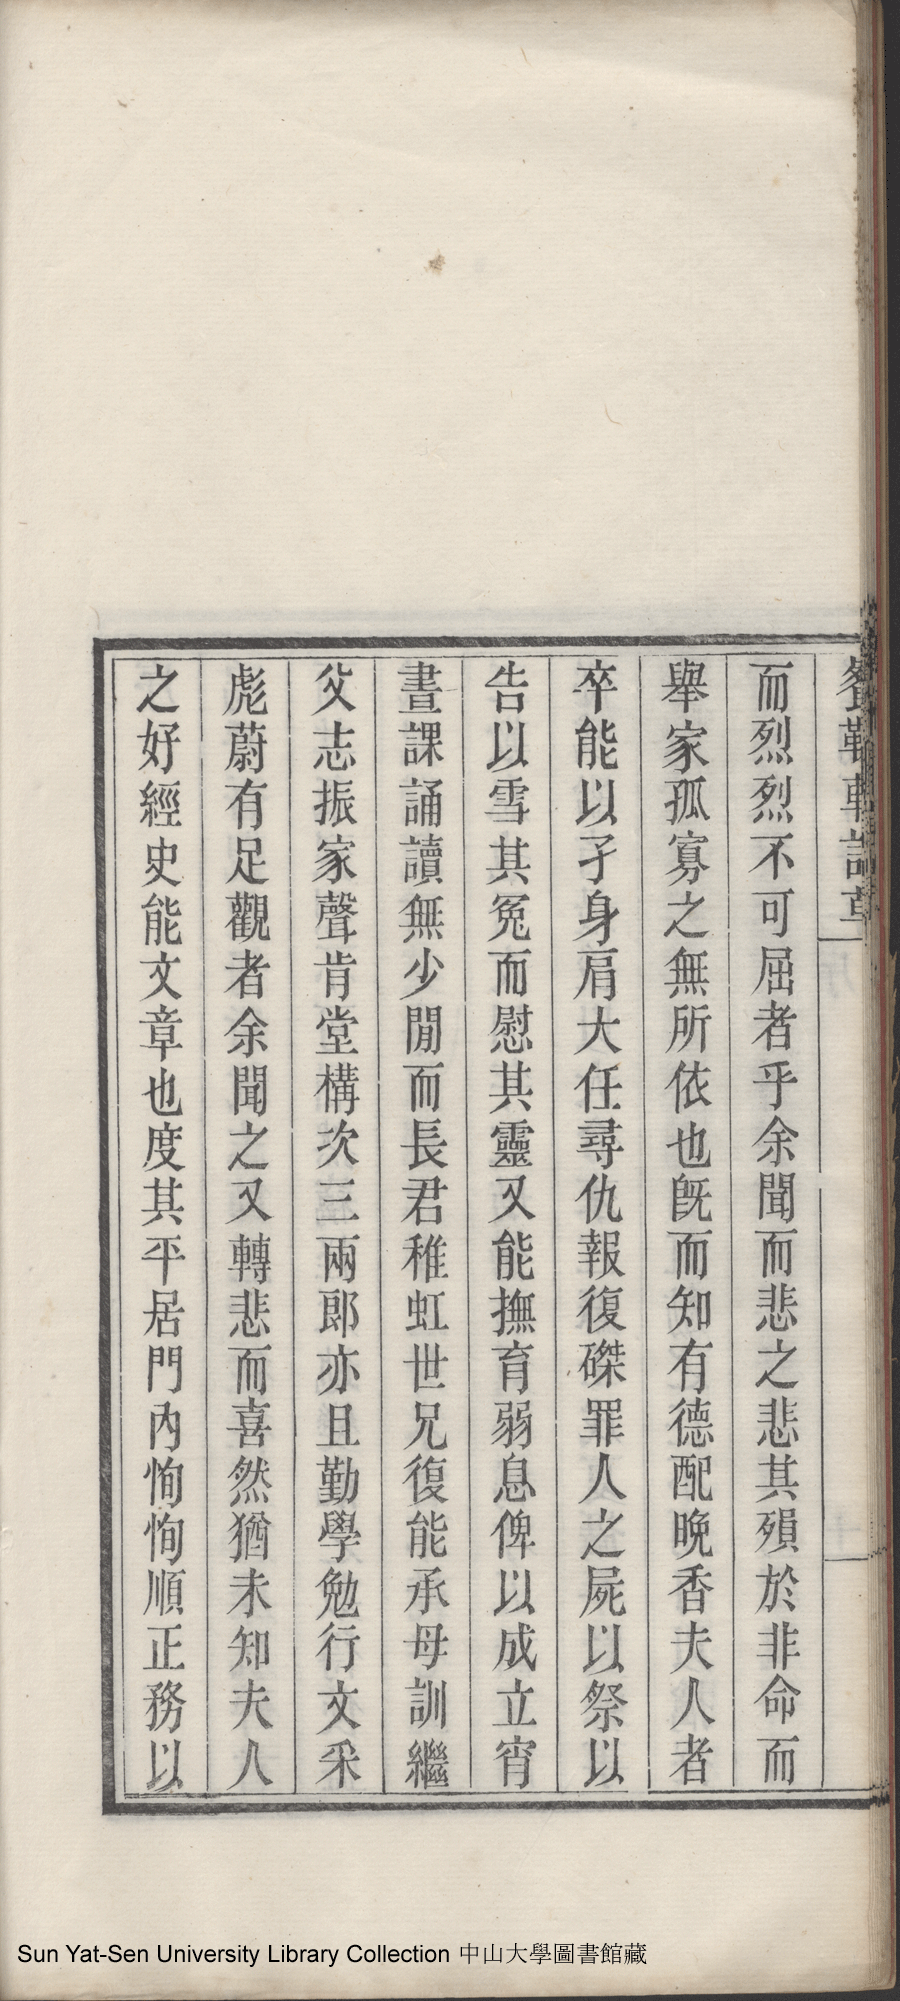 而烈烈不可屈者乎余聞而悲之悲其殞於非命而
舉家孤寡之無所依也旣而知有德配晩香夫人者
卒能以孑身肩大任尋仇報復磔罪人之屍以祭以
告以雪其冤而慰其靈又能撫育弱息俾以成立宵
晝課誦讀無少閒而長君稚虹世兄復能承母訓繼
父志振家聲肯堂構次三兩郎亦且勤學勉行文采
彪蔚有足觀者余聞之又轉悲而喜然猶未知夫人
之好經史能文章也度其平居門內恂恂順正務以
Sun Yat-Sen University Library Collection 中山大學圖書館藏